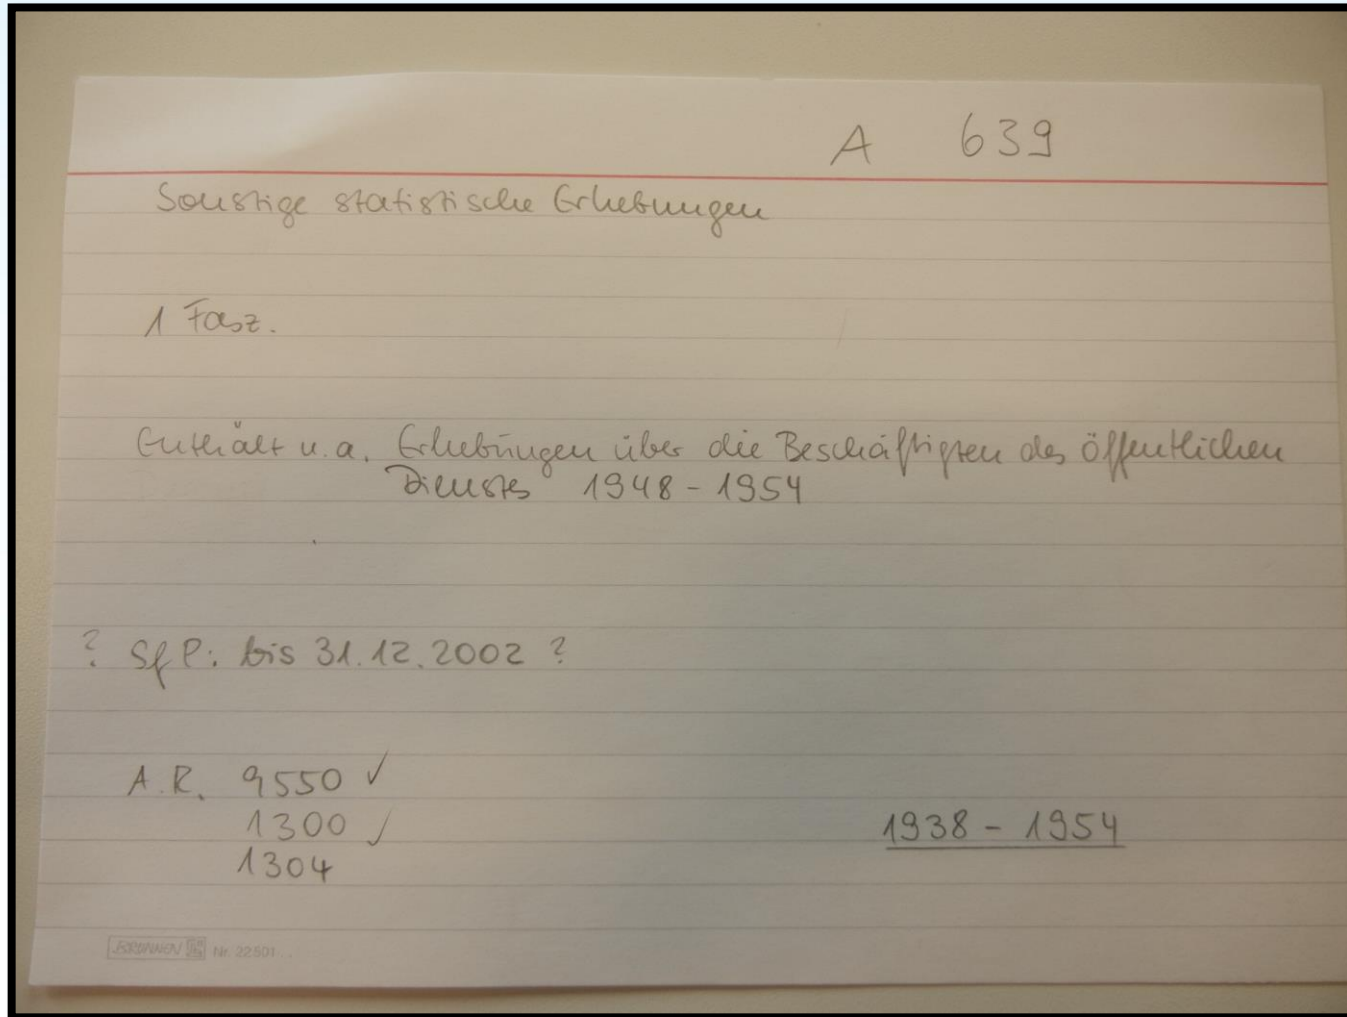 A 639
Sonstige statistische Erhebungen
1 Fasz.
Enthält u.a. Erhebungen über die Beschäftigten des öffentlichen
Dienstes 1948 - 1954
? SfP: bis 31.12.2002 ?
A.R. 9550 ✓
1300 ✓
1304
1938 - 1954
BRUNNEN Nr. 22501